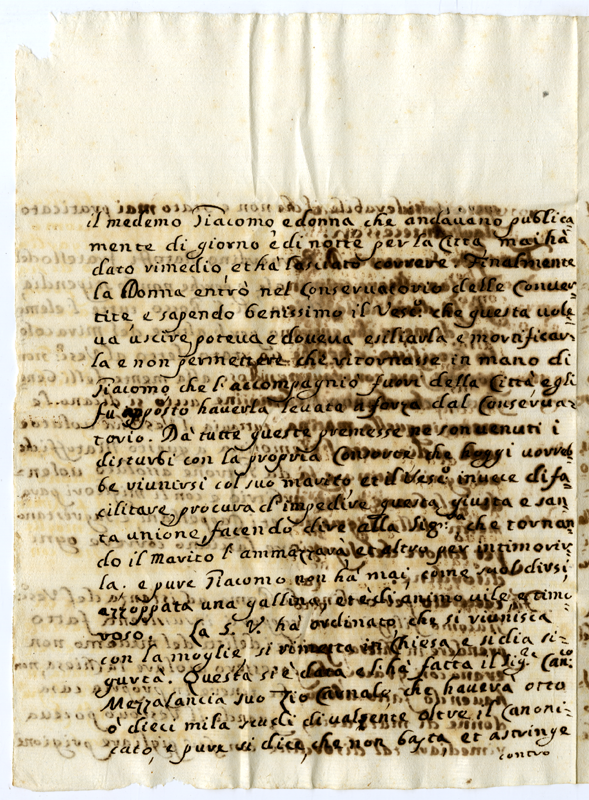 il medemo Giacomo e donna che andaveno publica
mente di giorno è di notte per la Città, mai hà
dato rimedio, et hà lasciato correre. Finalmente
la Donna entrò nel Conservatorio delle Conver=
tite e sapendo benissimo il Vesc.º che questa vole=
va uscire, poteva e doveva esiliarla e mortificar=
la e non permettere che ritornasse in mano di
Giacomo che l'accompagniò fuori della Città e gli
fu opposto haverla levata a forza dal Conserva=
torio. Da tutte queste premesse ne son venuti i
disturbi con la propria Consorte che hoggi vorreb=
be riunirsi col suo marito et il Vesc.º invece di fa=
cilitare, procura d'impedire questa giusta e san=
ta unione, facendo dire alla Sig.ra che tornan=
do il Marito l'ammazzarà et altro per intimorir=
la. e pure Giacomo non hà mai, come suol dirsi,
azzoppata una gallina, et è di animo vile e timo=
roso. La S. V. hà ordinato che si riunisca
con la moglie, si rimetta in Chiesa e si dia si=
gurtà. Questa si è data e l'hà fatta il Sig.re Can.co
Mezzalancia suo Zio Carnale, che haverà otto
ò dieci mila scudi di valsente oltre il Canoni=
cato, e pure si dice, che non basta, et astringe
contro